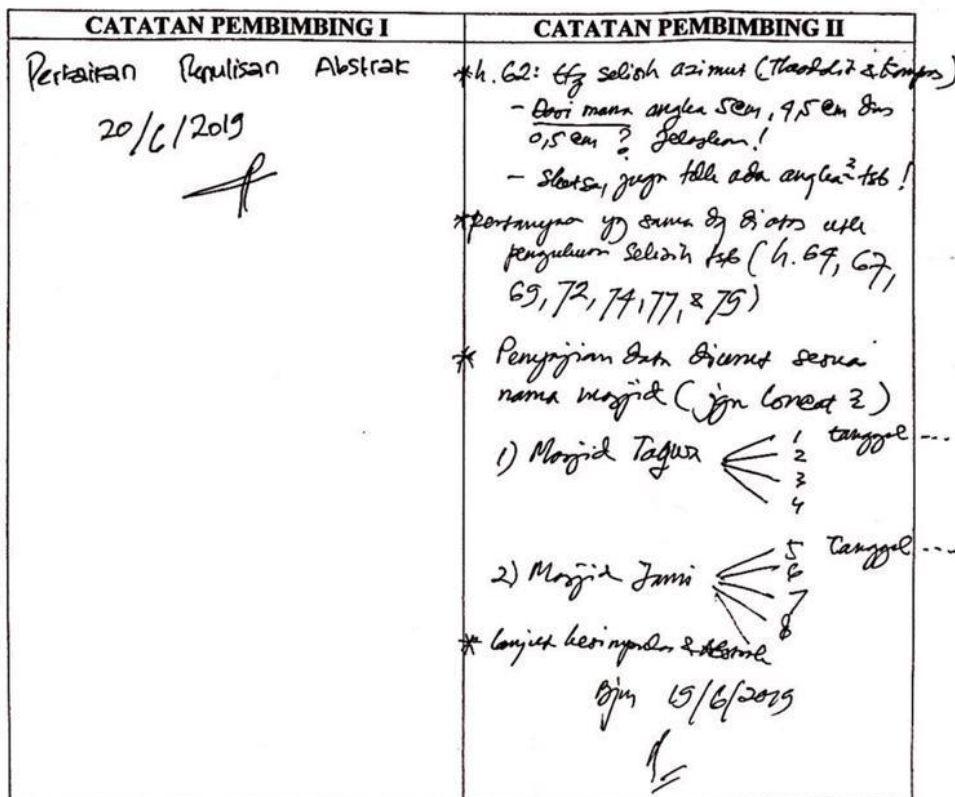 CATATAN PEMBIMBING I
Perbaikan Penulisan Abstrak
20/6/2019
CATATAN PEMBIMBING II
*h. 62: ttg selisih azimut (Theodolit & Kompas)
- Dari mana angka 5 cm, 4,5 cm dan
0,5 cm ? Jelaskan!
- Sketsa, juga tdk ada angka² tsb!
*Pertanyaan yg sama dg diatas utk
pengukuran selisih tsb (h. 64, 67,
69, 72, 74, 77, & 79)
* Penyajian data diurut sesuai
nama masjid (jgn loncat 2)
1) Masjid Taqwa
1 tanggal ---
2
3
4
2) Masjid Jami
5 tanggal ---
6
7
8
* lanjut kesimpulan & Abstrak
Bjm 19/6/2019